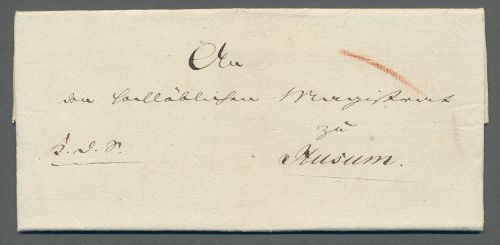 An
den hochlöblichen Magistrat
zu
K. D. S. Husum.